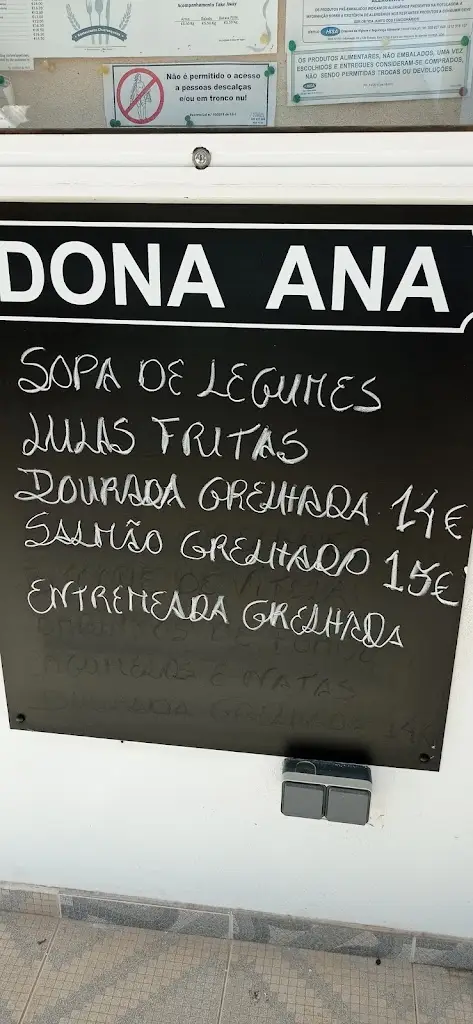 Acompanhamento Take Away
Não é permitido o acesso
a pessoas descalças
e/ou em tronco nu!
OS PRODUTOS ALIMENTARES, NÃO EMBALADOS, UMA VEZ
ESCOLHIDOS E ENTREGUES CONSIDERAM-SE COMPRADOS,
NÃO SENDO PERMITIDAS TROCAS OU DEVOLUÇÕES.
DONA ANA
SOPA DE LEGUMES
LULAS FRITAS
DOURADA GRELHADA 14€
SALMÃO GRELHADO 15€
ENTREMEADA GRELHADA